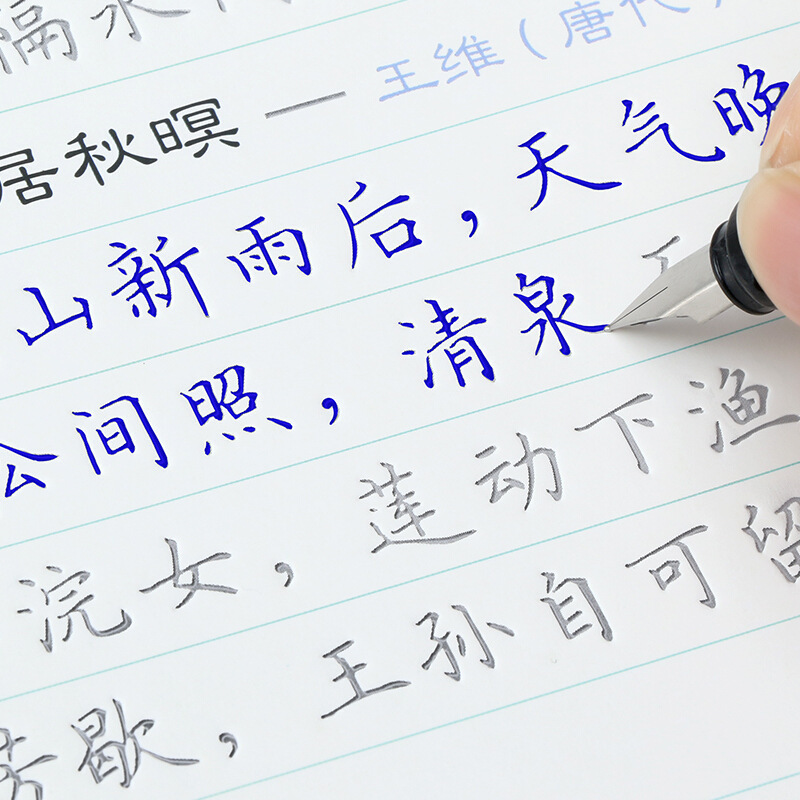 隔水
居秋暝 — 王维（唐代）
山新雨后，天气晚
间照，清泉
浣女，莲动下渔
芳歇，王孙自可留